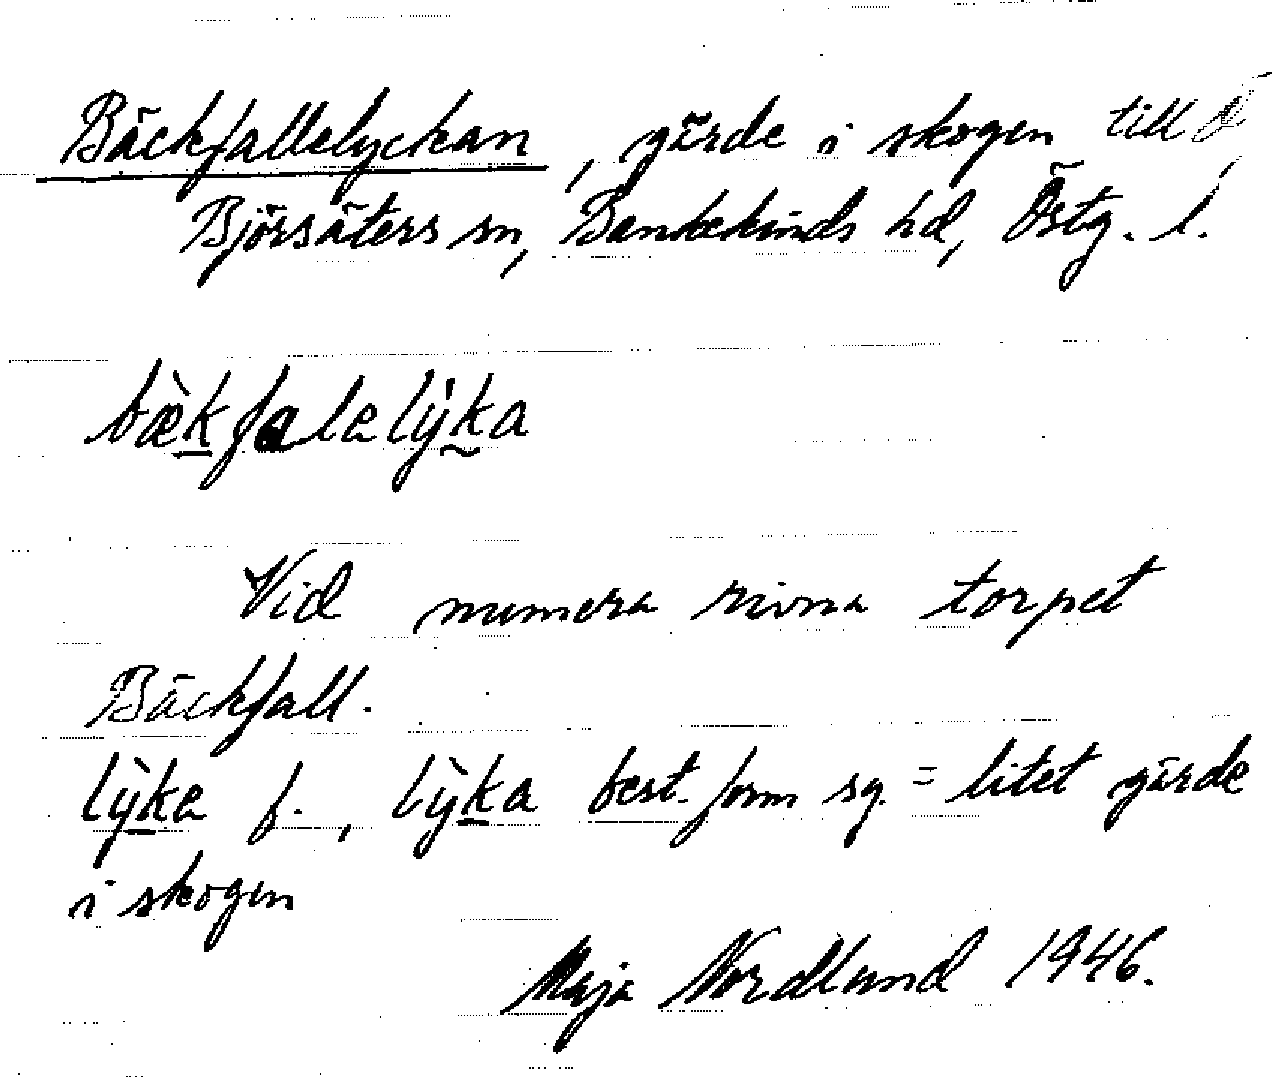 Bäckfallelyckan, gärde i skogen till
Björsäters sn, Bankekinds hd, Östg. l.
bæ̀kfalelỳka
Vid numera rivna torpet
Bäckfall.
lỳka f., lỳka best. form sg. = litet gärde
i skogen
Maja Nordlund 1946.